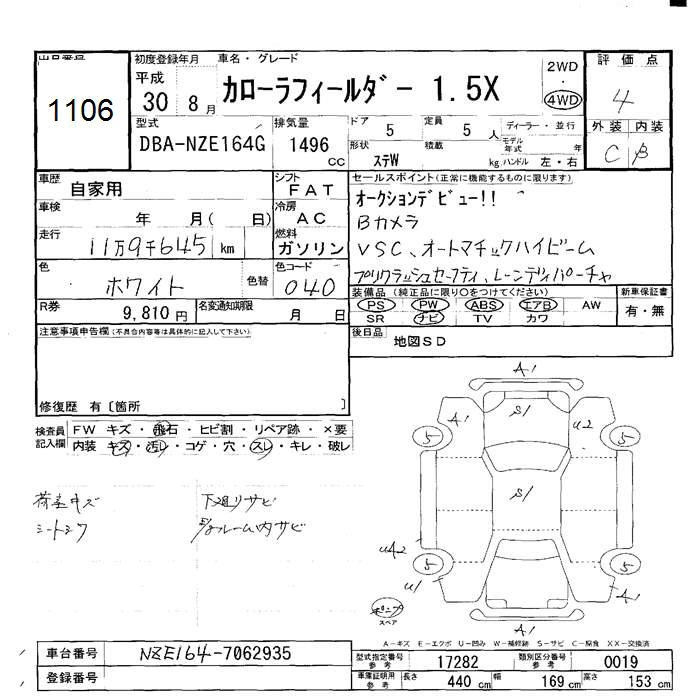 出品番号 初度登録年月 車名・グレード 2WD・4WD 評価点
1106
平成 30 8月 カローラフィールダー 1.5X
4
型式 排気量 ドア 5 定員 5人 ディーラー・並行 外装 内装
DBA-NZE164G 1496 cc 形状 ステW 積載 kg モデル年式 年 ハンドル 左・右 C B
車歴 自家用 シフト FAT セールスポイント(正常に機能するものに限ります)
車検 年 月( 日) 冷房 AC オークションデビュー!!
Bカメラ
走行 11万9千645 km 燃料 ガソリン VSC、オートマチックハイビーム
色 ホワイト 色替 色コード 040 プリクラッシュセーフティ、レーンディパーチャ
R券 9,810円 名変通知期限 月 日 装備品(純正品に限り○をつけてください) 新車保証書
PS PW ABS エアB AW 有・無
SR ナビ TV カワ
注意事項申告欄(不具合内容等は具体的に記入して下さい) 後日品 地図SD
修復歴 有〔箇所 〕
検査員記入欄 FW キズ・飛石・ヒビ割・リペア跡・×要
内装 キズ・汚レ・コゲ・穴・スレ・キレ・破レ
荷室キズ 下廻リサビ
フレーム内サビ
A1
A1 S1 U2
5 5
S1
UA2
5 5
U1
スペア
A1
A-キズ E-エクボ U-凹み W-補修跡 S-サビ C-腐食 XX-交換済
車台番号 NZE164-7062935 型式指定番号 参考 17282 類別区分番号 参考 0019
登録番号 車庫証明用 参考 長さ 440 cm 幅 169 cm 高さ 153 cm